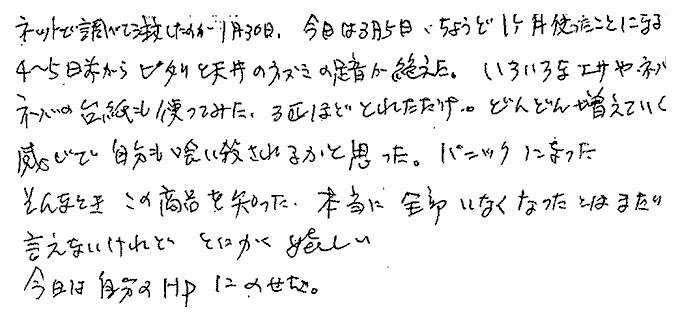 ネットで調べて注文したのが1月30日、今日は3月5日、ちょうど1ヶ月使ったことになる
4〜5日前から ピタリと天井のネズミの足音が絶えた。いろいろなエサやネバ
ネーバの台紙も使ってみた、3匹ほどとれただけ。どんどん増えていく
感じで 自分も喰い殺されるかと思った。パニックになった
そんなとき この商品を知った、本当に 全部 いなくなったとはまだ
言えないけれど とにかく 嬉しい
今日は自分のHPにのせた。